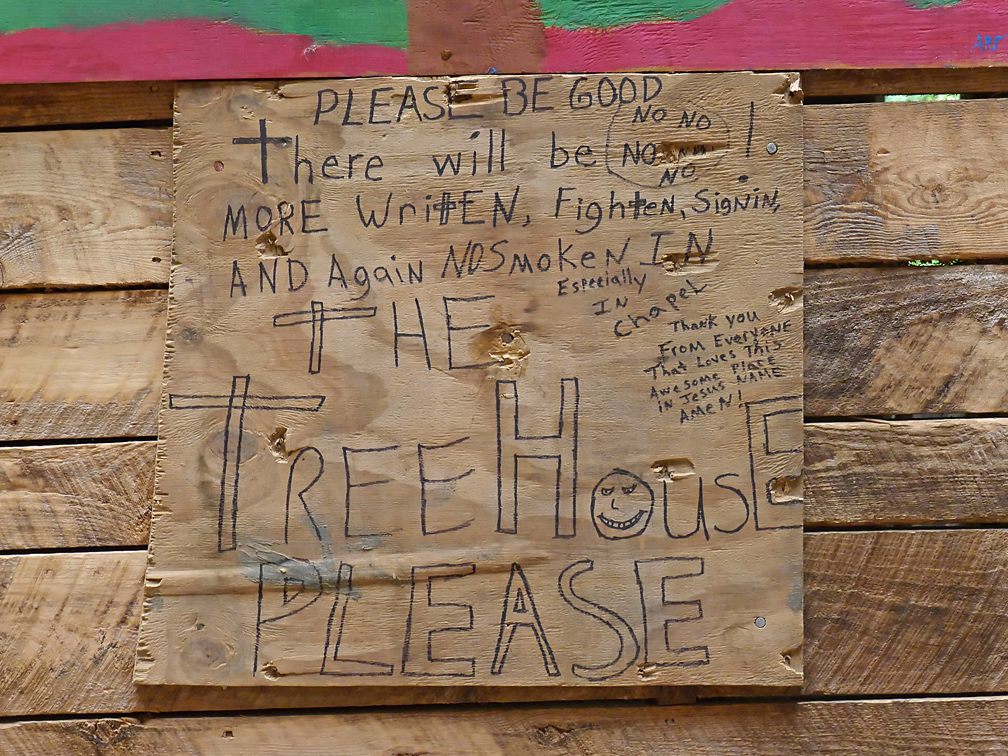 PLEASE BE GOOD
There will be NO NO NO NO NO !
MORE WrittEN, FightEN, SigNiN,
AND Again NO SmoKeN IN
Especially
IN
Chapel
THE
Thank you
From EveryoNE
That Loves This
Awesome Place
in Jesus NAME
AMeN!
TREEHousE
PLEASE
ABF